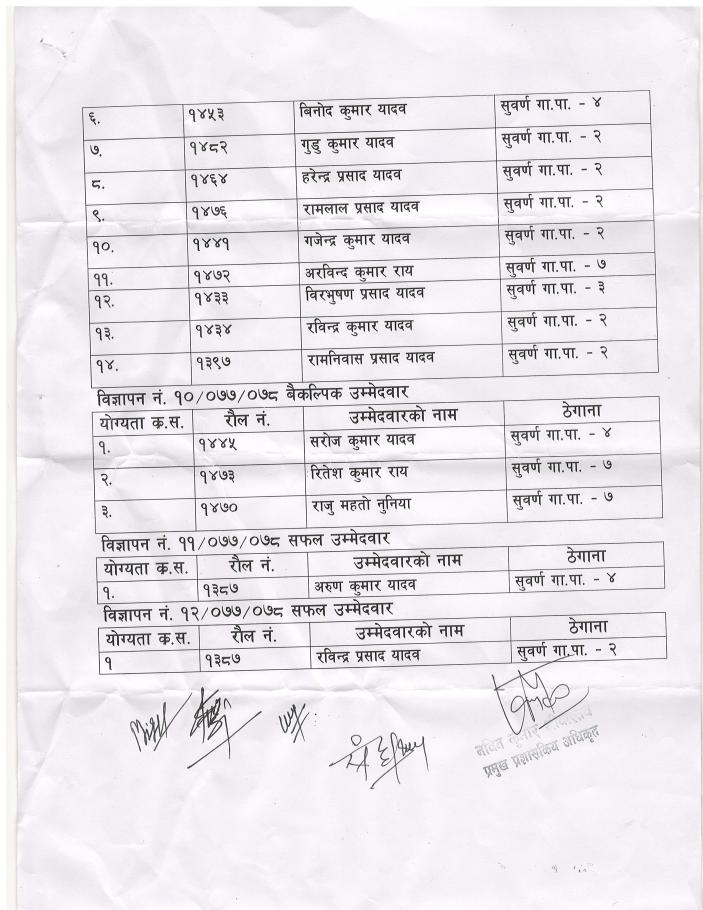 ६. १४५३ बिनोद कुमार यादव सुवर्ण गा.पा. - ४
७. १४८२ गुडु कुमार यादव सुवर्ण गा.पा. - २
८. १४६४ हरेन्द्र प्रसाद यादव सुवर्ण गा.पा. - २
९. १४७६ रामलाल प्रसाद यादव सुवर्ण गा.पा. - २
१०. १४४१ गजेन्द्र कुमार यादव सुवर्ण गा.पा. - २
११. १४७२ अरविन्द कुमार राय सुवर्ण गा.पा. - ७
१२. १४३३ विरभुषण प्रसाद यादव सुवर्ण गा.पा. - ३
१३. १४३४ रविन्द्र कुमार यादव सुवर्ण गा.पा. - २
१४. १३९७ रामनिवास प्रसाद यादव सुवर्ण गा.पा. - २
विज्ञापन नं. १०/०७७/०७८ बैकल्पिक उम्मेदवार
योग्यता क्र.स. रौल नं. उम्मेदवारको नाम ठेगाना
१. १४४५ सरोज कुमार यादव सुवर्ण गा.पा. - ४
२. १४७३ रितेश कुमार राय सुवर्ण गा.पा. - ७
३. १४७० राजु महतो नुनिया सुवर्ण गा.पा. - ७
विज्ञापन नं. ११/०७७/०७८ सफल उम्मेदवार
योग्यता क्र.स. रौल नं. उम्मेदवारको नाम ठेगाना
१. १३८७ अरुण कुमार यादव सुवर्ण गा.पा. - ४
विज्ञापन नं. १२/०७७/०७८ सफल उम्मेदवार
योग्यता क्र.स. रौल नं. उम्मेदवारको नाम ठेगाना
१ १३८७ रविन्द्र प्रसाद यादव सुवर्ण गा.पा. - २
कुमार
प्रमुख प्रशासकिय अधिकृत